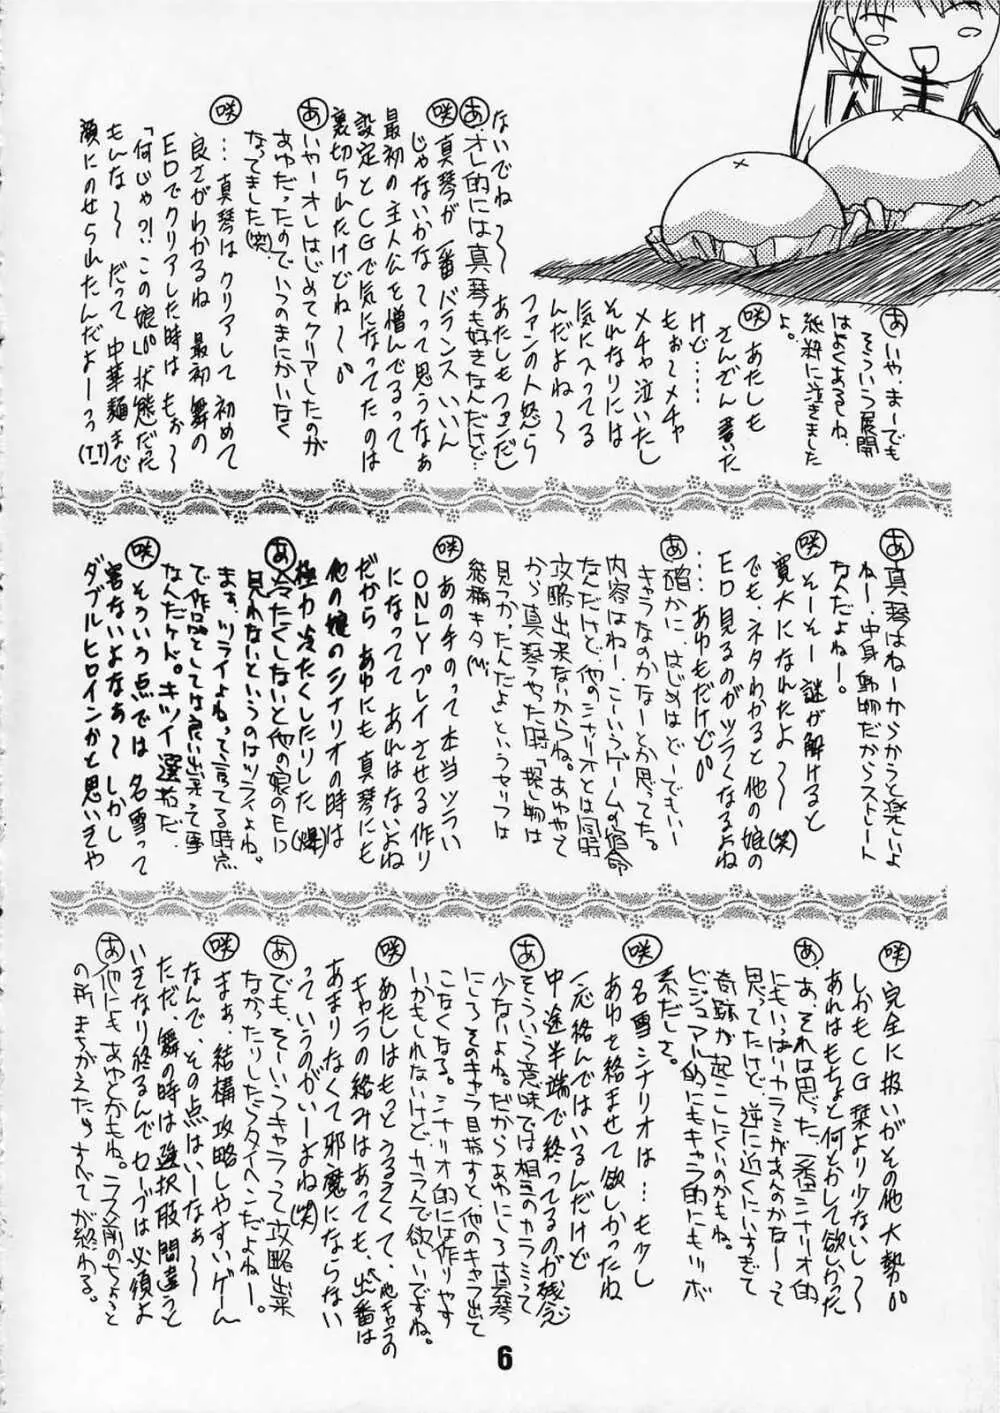 ないでね〜
㋐オレ的には真琴も好きなんだけど…
㊋真琴が一番バランスいいん
じゃないかなってって思うなぁ
最初の主人公を憎んでるって
設定とCGで気になってたのは
裏切られたけどね〜
あいやーオレはじめてクリアしたのが
あゆだったのでいつのまにかいなく
なってました(笑)
咲…真琴はクリアして初めて
良さがわかるね 最初舞の
EDでクリアした時はもぉ〜
「何じゃ?!この娘」状態だた
もんな〜 だって中華麺まで
顔にのせられたんだよーっ(T_T)
あいや、まーでも
そういう展開
はよくあるよね、
紙粋に泣きました
よ。
咲あたしも
さんざん書いた
けど……
もぉ〜メチャ
メチャ泣いたし
それなりには
気に入ってる
んだよね〜
ファンの人怒ら
あたしもファンだし
あ真琴はねーからかうと楽しいよ
ねー、中身動物だからストレート
なんだよねー。
咲そーそー謎が解けると
寛大になれたよ〜(笑)
でも、ネタわかると他の娘の
ED見るのがツラくなるよね
……あゆもだけど
あ確かに、はじめはどーでもいー
キャラなのかなーとか思ってた。
内容はねー、こーいうゲームの宿命
なんだけど、他のシナリオとは同時
攻略出来ないからね。あゆやって
から真琴やった時「探し物は
見つかったんだよ」というセリフは
結構キタ
咲あの手のって本当ツライ
ONLYプレイさせる作り
になってて あれはないよね
だから あゆにも真琴にも
他の娘のシナリオの時は
極力冷たくしたりした(爆)
あ冷たくしないと他の娘のED
見れないというのはツライよね。
ます、ツライよねって言ってる時点
で作品としては良い出来って事
なんだケド。キツイ選択だ。
咲そういう点では名雪って
害ないよなあ〜しかし
ダブルヒロインかと思いきや
咲完全に扱いがその他大勢
しかもCG栞より少ないし〜
あれはもちょと何とかして欲しかった
あ、あ、それは思った、一応シナリオ的
にもいっぱいカラミがあんのかな〜って
思ってたけど、逆に近くにいすぎて
奇跡が起こしにくいのかもね。
ビジュアル的にもキャラ的にもリッボ
系だしさ。
咲名雪シナリオは…も少し
あゆと絡ませて欲しかったね
一応絡んではいるんだけど
中途半端で終ってるのが残念
あそういう意味では相互のカラミって
少ないよね。だからあゆにしろ真琴
にしろそのキャラ目指すと、他のキャラ出て
こなくなる。シナリオ的には作りやす
いかもしれないけど、カラんで欲しいですね。
咲あたしはもっとうるさくて、他キャラの
キャラの絡みはあっても、出番は
あまりなくて邪魔にならない
っていうのがいーよね(笑)
あでも、そーいうキャラって攻略出来
なかったりしたらタイヘンだよねー。
咲まぁ、結構攻略しやすいゲーム
なんで、その点はいーなぁ〜
ただ、舞の時は選択肢間違うと
いきなり終るんでセーブは必須よ
あ他にもあゆとかもね。ラス前のちょっと
の所 まちがえたらすべてが終わる。
6